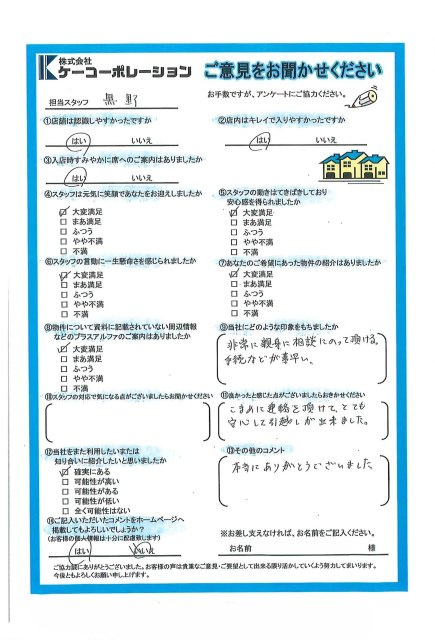 株式会社
ケーコーポレーション
ご意見をお聞かせください
お手数ですが、アンケートにご協力ください。
担当スタッフ 黒野
①店舗は認識しやすかったですか
はい いいえ
②店内はキレイで入りやすかったですか
はい いいえ
③入店時すみやかに席へのご案内はありましたか
はい いいえ
④スタッフは元気に笑顔であなたをお迎えしましたか
☑ 大変満足
□ まあ満足
□ ふつう
□ やや不満
□ 不満
⑤スタッフの動きはてきぱきしており
安心感を得られましたか
☑ 大変満足
□ まあ満足
□ ふつう
□ やや不満
□ 不満
⑥スタッフの言動に一生懸命さを感じられましたか
☑ 大変満足
□ まあ満足
□ ふつう
□ やや不満
□ 不満
⑦あなたのご希望にあった物件の紹介はありましたか
☑ 大変満足
□ まあ満足
□ ふつう
□ やや不満
□ 不満
⑧物件について資料に記載されていない周辺情報
などのプラスアルファのご案内はありましたか
☑ 大変満足
□ まあ満足
□ ふつう
□ やや不満
□ 不満
⑨当社にどのような印象をもちましたか
非常に親身に相談にのって頂ける。
手続などが素早い。
⑩スタッフの対応で気になる点がございましたらお聞かせください
⑪良かったと感じた点がございましたらおきかせください
こまめに連絡を頂けて、とても
安心して引越しが出来ました。
⑫当社をまた利用したいまたは
知り合いに紹介したいと思いましたか
☑ 確実にある
□ 可能性が高い
□ 可能性がある
□ 可能性が低い
□ 全く可能性はない
⑬その他のコメント
本当にありがとうございました
⑭ご記入いただいたコメントをホームページへ
掲載してもよろしいでしょうか?
(お客様の個人情報は十分に配慮致します)
はい いいえ
※お差し支えなければ、お名前をご記入ください。
お名前 様
ご協力誠にありがとうございました。お客様の声は貴重なご意見・ご要望として出来る限り活かしていくよう努力してまいります。
今後ともよろしくお願い申し上げます。